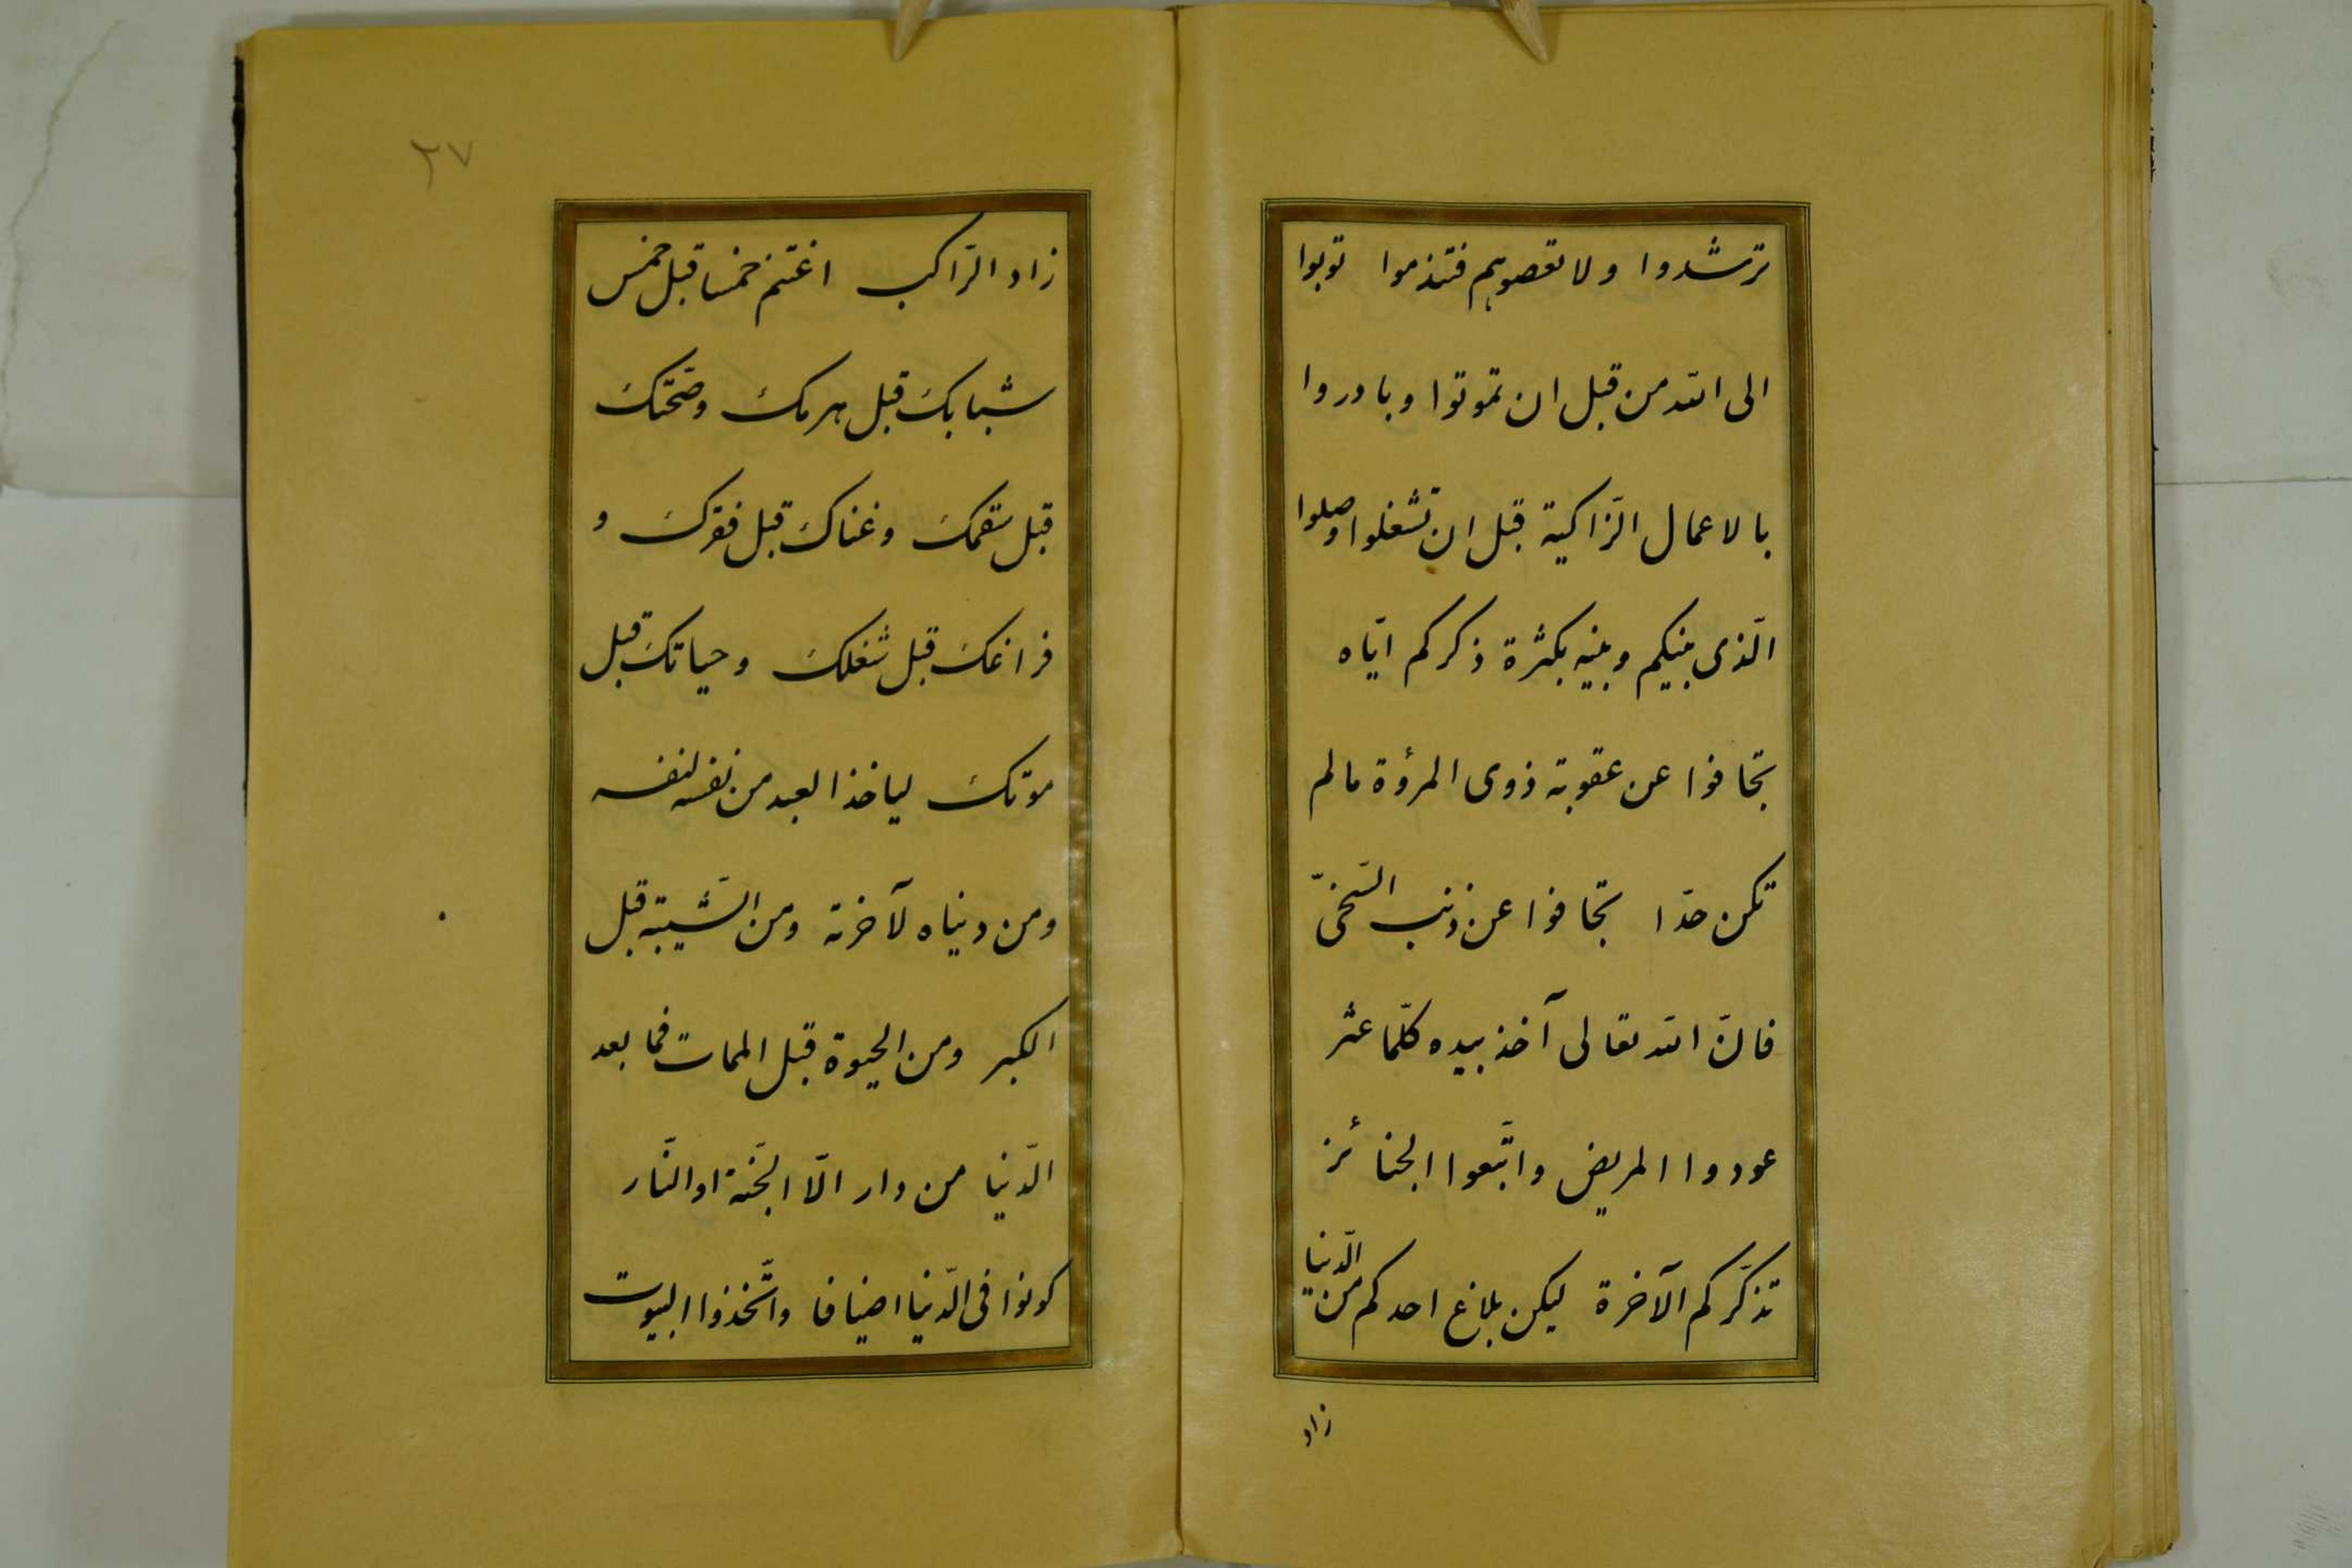 ترشدوا ولا تعصوهم فتندموا توبوا
الى الله من قبل ان تموتوا وبادروا
بالاعمال الزّاكية قبل ان تشغلوا وصلوا
الّذى بينكم وبينه بكثرة ذكركم ايّاه
تجافوا عن عقوبة ذوى المرؤة مالم
تكن حدّا تجافوا عن ذنب السّخىّ
فانّ الله تعالى آخذ بيده كلّما عثر
عودوا المريض واتّبعوا الجنائز
تذكّركم الآخرة ليكن بلاغ احدكم من الدّنيا
زاد
٢٧
زاد الرّاكب اغتنم خمسا قبل خمس
شبابك قبل هرمك وصّحتك
قبل سقمك وغناك قبل فقرك و
فراغك قبل شغلك وحياتك قبل
موتك لياخذ العبد من نفسه لنفسه
ومن دنياه لآخرته ومن الشّيبة قبل
الكبر ومن الحيوة قبل الممات فما بعد
الدّنيا من دار الّا الجّنة او النّار
كونوا فى الدّنيا اضيافا واتّخذوا البيوت